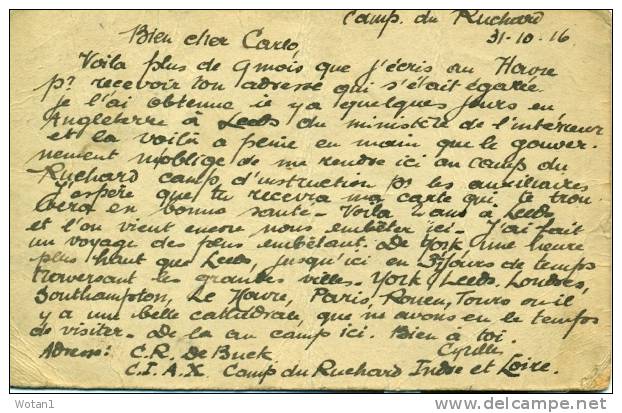 Camp. du Ruchard
31-10-16
Bien cher Carlo,
Voila plus de 9 mois que j'écris au Havre
pr recevoir ton adresse qui s'était égarée.
je l'ai obtenue ie y a quelques jours en
Angleterre à Leeds du ministère de l'intérieur
et la voilà a peine en main que le gouver-
nement m'oblige de me rendre ici au camp du
Ruchard camp d'instruction pr les auxiliaires
J'espère que tu recevra ma carte qui te trou-
vera en bonne santé - Voila 2 ans à Leeds
et l'on vient encore nous embêter ici - J'ai fait
un voyage des plus embêtant. De York une heure
plus haut que Leeds, jusqu'ici en 3 jours de temps
traversant les grandes villes - York Leeds. Londres,
Southampton, Le Havre, Paris, Rouen, Tours ou il
y a une belle cathédrale, que ne avons eu le temps
de visiter - De la au camp ici. Bien à toi.
Cyrille
Adresse: C.R. De Buck
C.I.A.X. Camp du Ruchard Indre et Loire.
Wotan1
delcampe.net